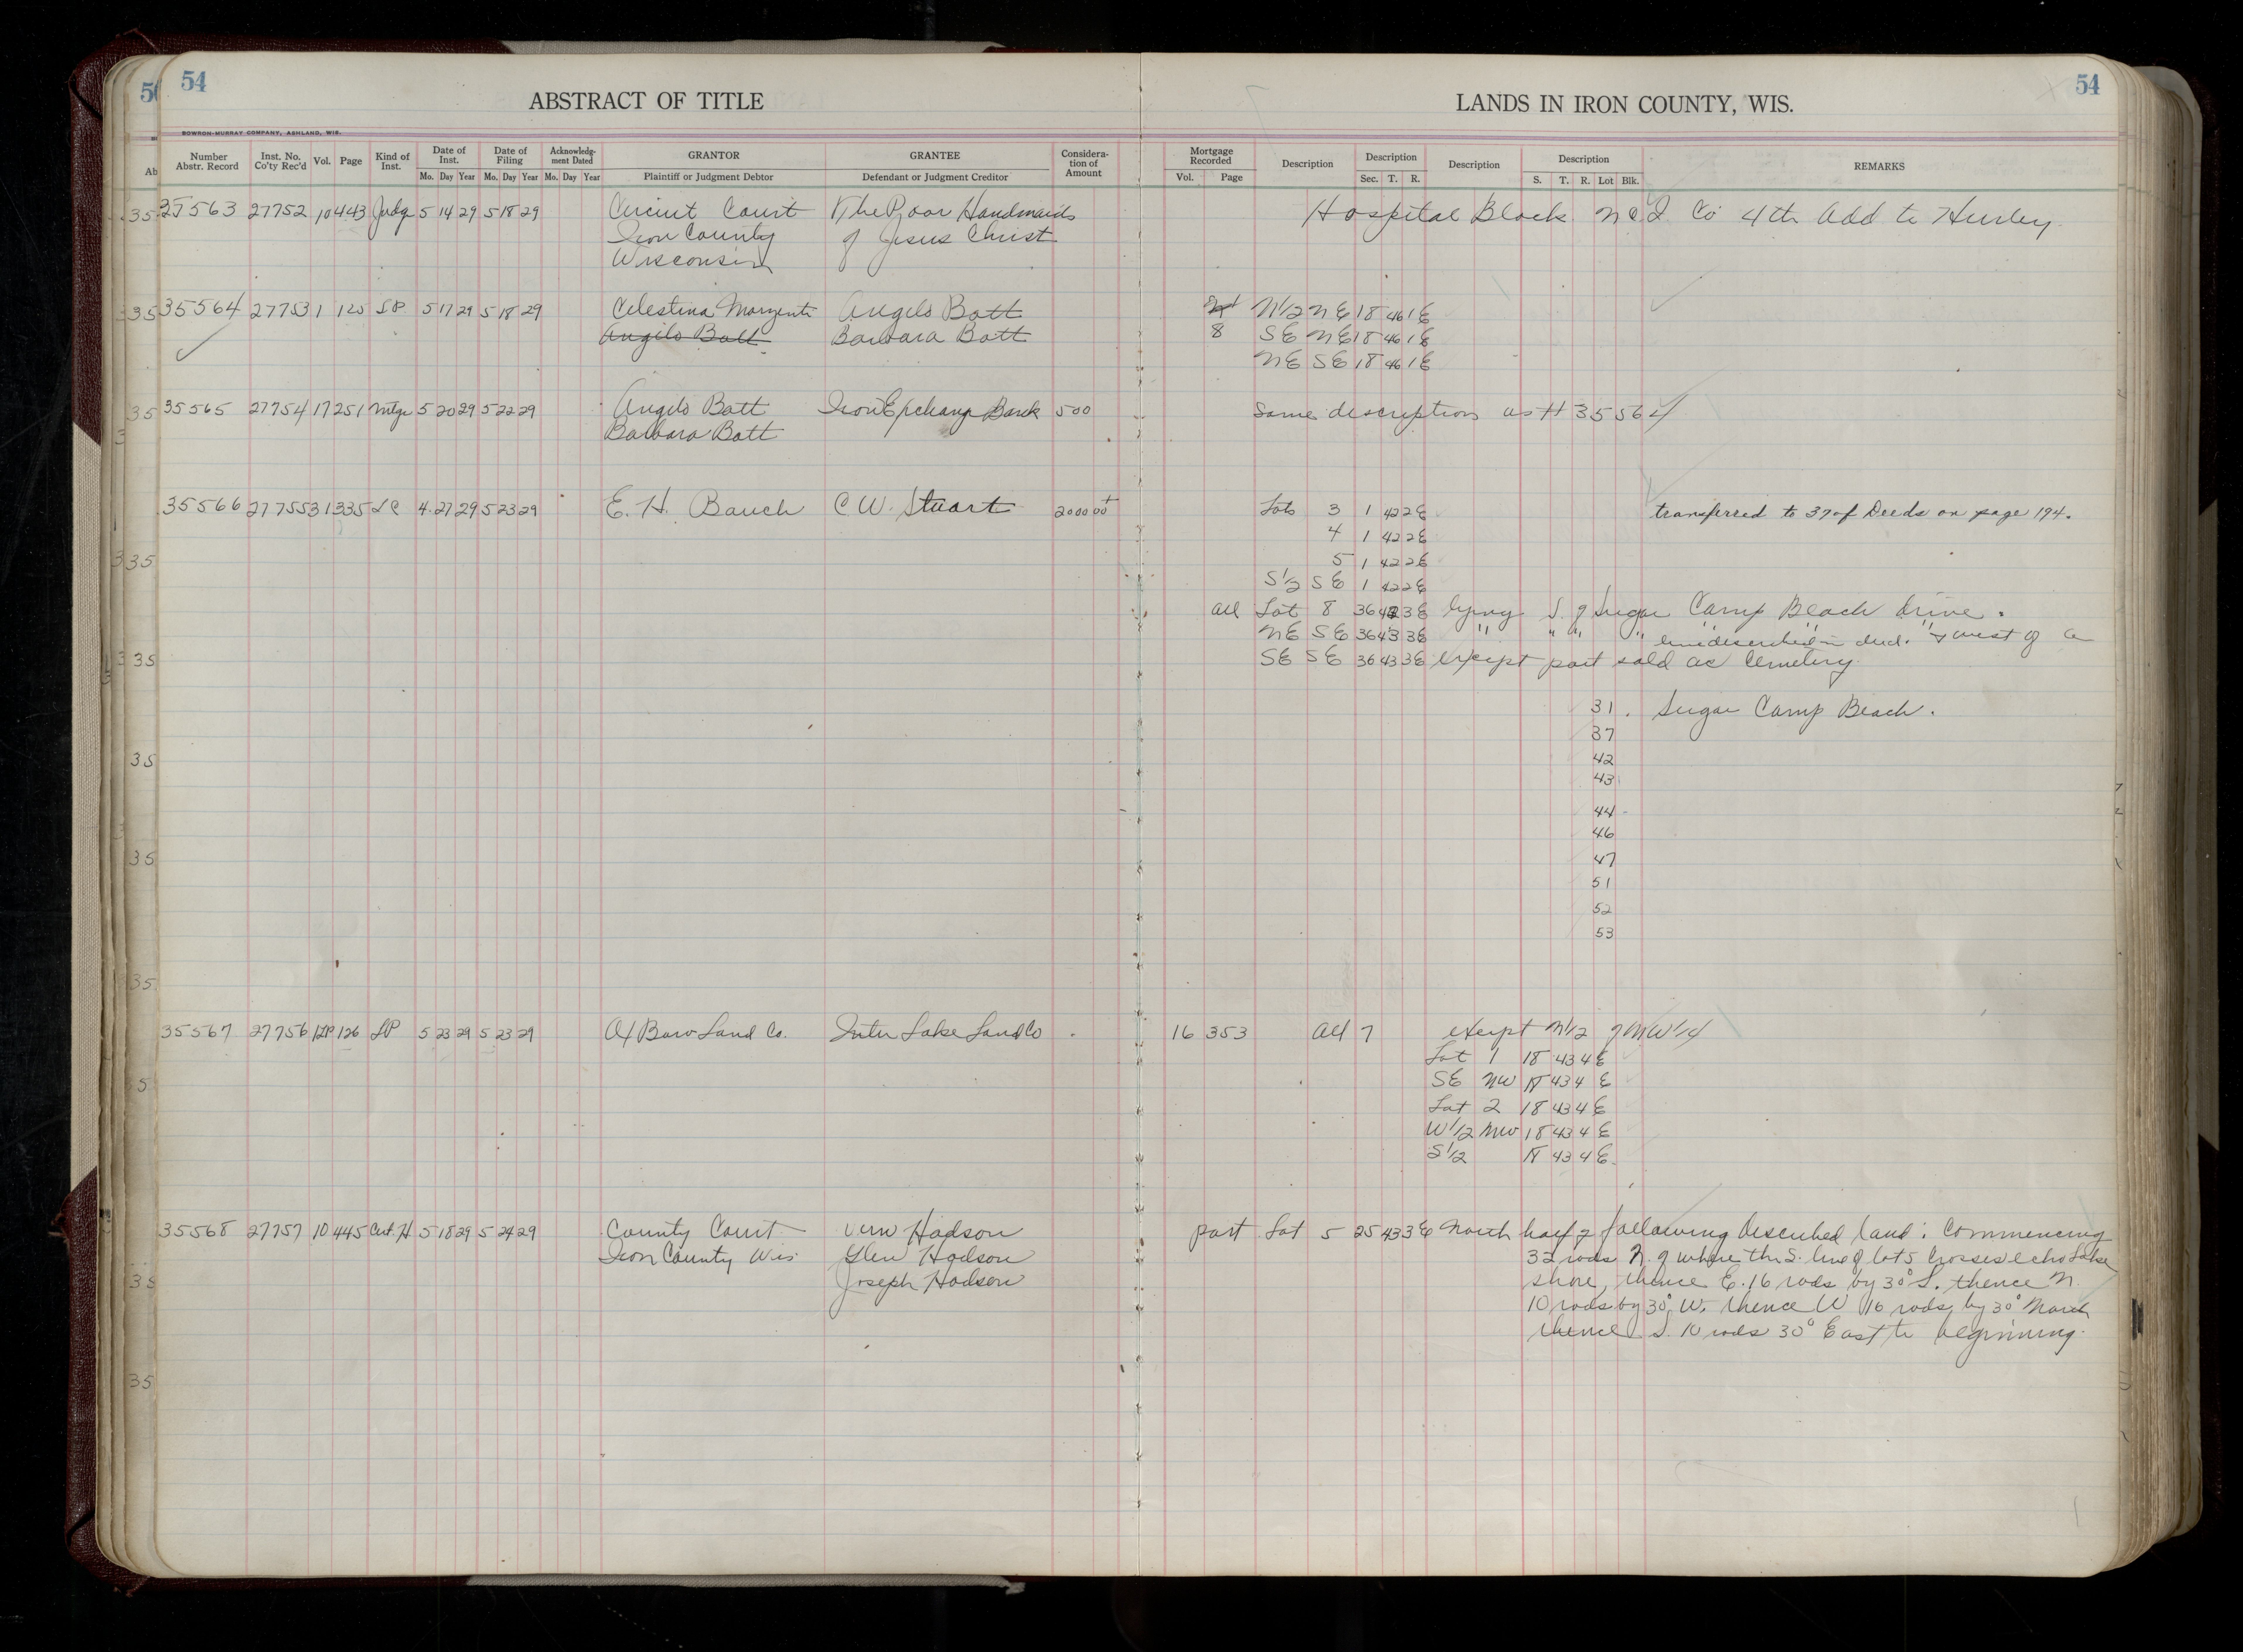 54
54
ABSTRACT OF TITLE
LANDS IN IRON COUNTY, WIS.
BOWRON-MURRAY COMPANY, ASHLAND, WIS.
Number Abstr. Record Inst. No. Co'ty Rec'd Vol. Page Kind of Inst. Date of Inst. Mo. Day Year Date of Filing Mo. Day Year Acknowledg-ment Dated Mo. Day Year GRANTOR Plaintiff or Judgment Debtor GRANTEE Defendant or Judgment Creditor Considera-tion of Amount Mortgage Recorded Vol. Page Description Description Sec. T. R. Description Description S. T. R. Lot Blk. REMARKS
35563 27752 10 443 Judg 5 14 29 5 18 29 Circuit Court The Poor Handmaids Hospital Block N C I Co 4th Add to Hurley
Iron County of Jesus Christ
Wisconsin
35564 27753 1 125 SP 5 17 29 5 18 29 Celestina Angelo Batt N1/2 NE 18 46 1E
Angelo Batt Barbara Batt 8 SE NE 18 46 1E
NE SE 18 46 1E
35565 27754 17 251 Mtge 5 20 29 5 22 29 Angelo Batt Iron Exchange Bank 500 Same description as # 35564
Barbara Batt
35566 27755 31 335 LC 4 27 29 5 23 29 E. H. Bauch C W. Stuart 2000 00 Lots 3 1 42 2E transferred to 37 of Deeds on page 194.
4 1 42 2E
5 1 42 2E
S1/2 SE 1 42 2E
all Lot 8 36 43 3E lying S. of Sugar Camp Beach drive.
NE SE 36 43 3E " " " " line described in deed. " & west of a
SE SE 36 43 3E except part sold as Cemetery
31. Sugar Camp Beach.
37
42
43
44
46
47
51
52
53
35567 27756 1LP 126 LP 5 23 29 5 23 29 Ox Bow Land Co. Inter Lake Land Co 16 353 all 7 except N1/2 of NW1/4
Lot 1 18 43 4E
SE NW 18 43 4 E
Lot 2 18 43 4E
W1/2 NW 18 43 4 E
S1/2 18 43 4 E.
35568 27757 10 445 Cert. H 5 18 29 5 24 29 County Court Vern Hodson part Lot 5 25 43 3E North half of following described land: Commencing
Iron County Wis Glen Hodson 32 rods N. of where the S. line of lot 5 crosses echo Lake
Joseph Hodson shore, thence E. 16 rods by 30° S. thence N.
10 rods by 30° W. thence W 16 rods by 30° North
thence S. 10 rods 30° East to beginning.